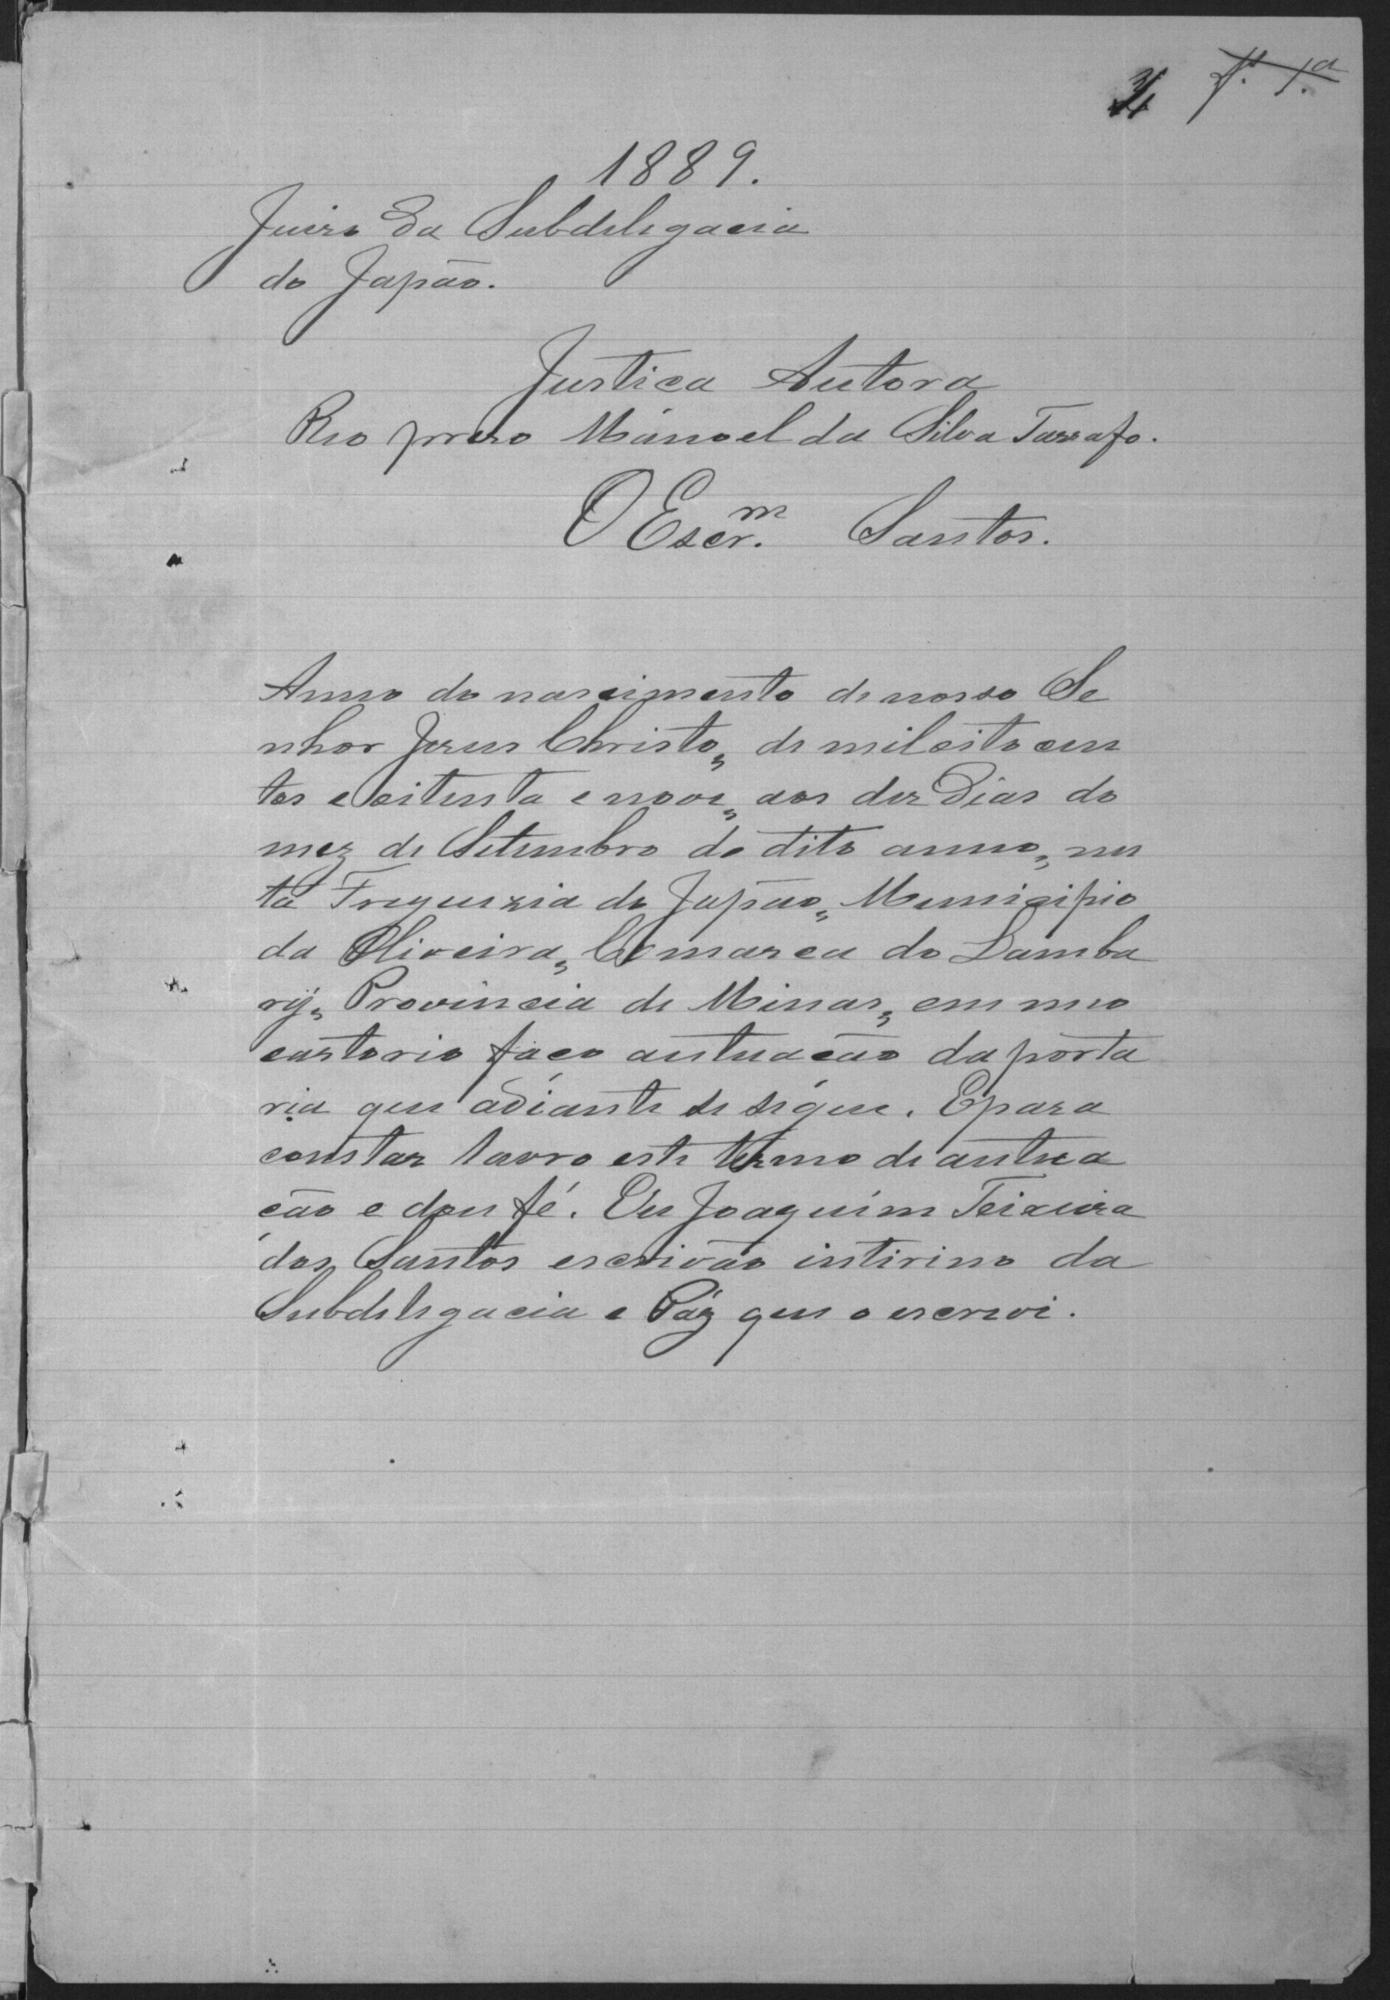 f. 1.a
1889.
Juizo da Subdelegacia
do Japão.
Justica Autora
Reo prezo Mánoel da Silva Tarrafo.
O Escr.m Santos.
Anno do nascimento de nosso Se
nhor Jezus Christo, de mil oito cen
tos e oitenta e nove, aos dez dias do
mez de Setembro do dito anno, nes
ta Freguezia do Japão, Municipio
da Oliveira, Comarca do Lamba
ry, Provincia de Minas, em meo
cartorio faço autuacão da porta
ria que adiante se segue. E para
constar lavro este termo de autua
cão e dou fé. Eu Joaquim Teixeira
dos Santos escrivão intirino da
Subdelegacia e Páz que o escrevi.